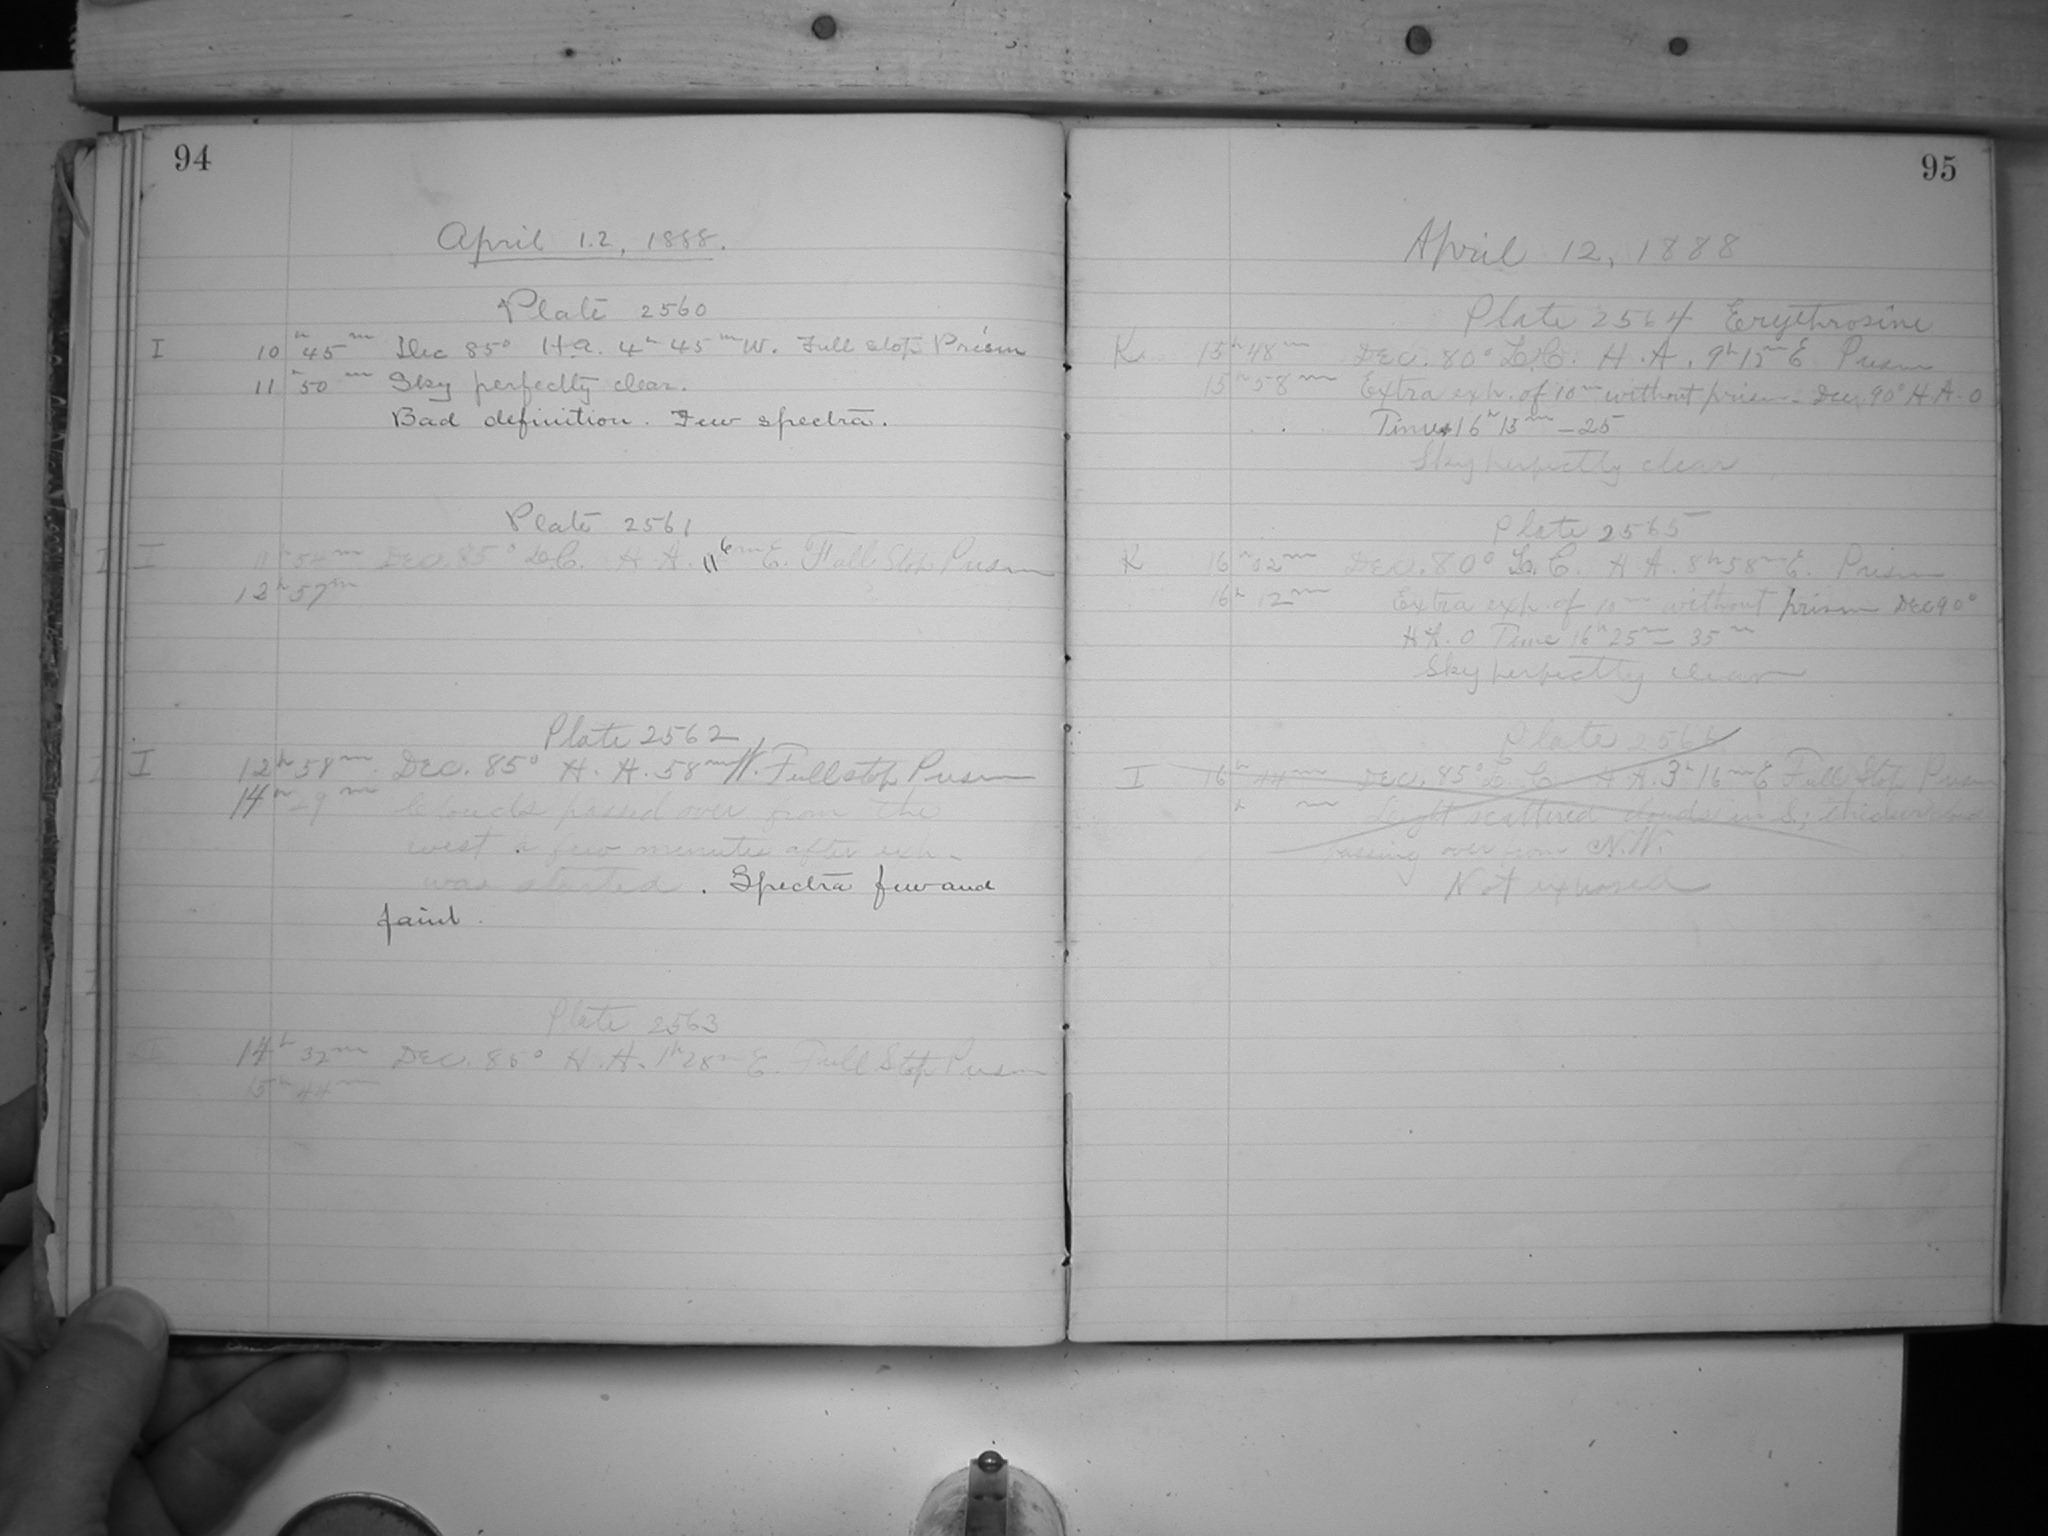 94
April 12, 1888.
Plate 2560
I 10h 45m Dec 85° H.a. 4h 45m W. Full stop Prism
11h 50m Sky perfectly clear.
Bad definition. Few spectra.
Plate 2561
I I 11h 54m Dec. 85° L.C. H.A. E. Full Stop Prism
12h 57m
Plate 2562
I I 12h 58m Dec. 85° H.A. 58m W. Full stop Prism
14h 9m Clouds passed over from the
west a few minutes after exh.
was started. Spectra few and
faint.
Plate 2563
I 14h 32m Dec. 85° H.A. 1h 28m E. Full Stop Prism
15h 44m
95
April 12, 1888
Plate 2564 Erythrosine
K 15h 48m Dec. 80° L.C. H.A. 9h 12m E Prism
15h 58m Extra exh. of 10m without prism - Dec. 90° H A. 0
Time 16h 15m - 25
Sky perfectly clear
Plate 2565
K 16h 02m Dec. 80° L.C. H.A. 8h 58m E. Prism
16h 12m Extra exh. of 10m without prism Dec 90°
H A. 0 Time 16h 25m - 35m
Sky perfectly clear
Plate 2566
I 16h 44m Dec. 85° L.C. H.A. 3h 16m E Full Stop Prism
h m Light scattered clouds in S; thicker
passing over from N.W.
Not exposed